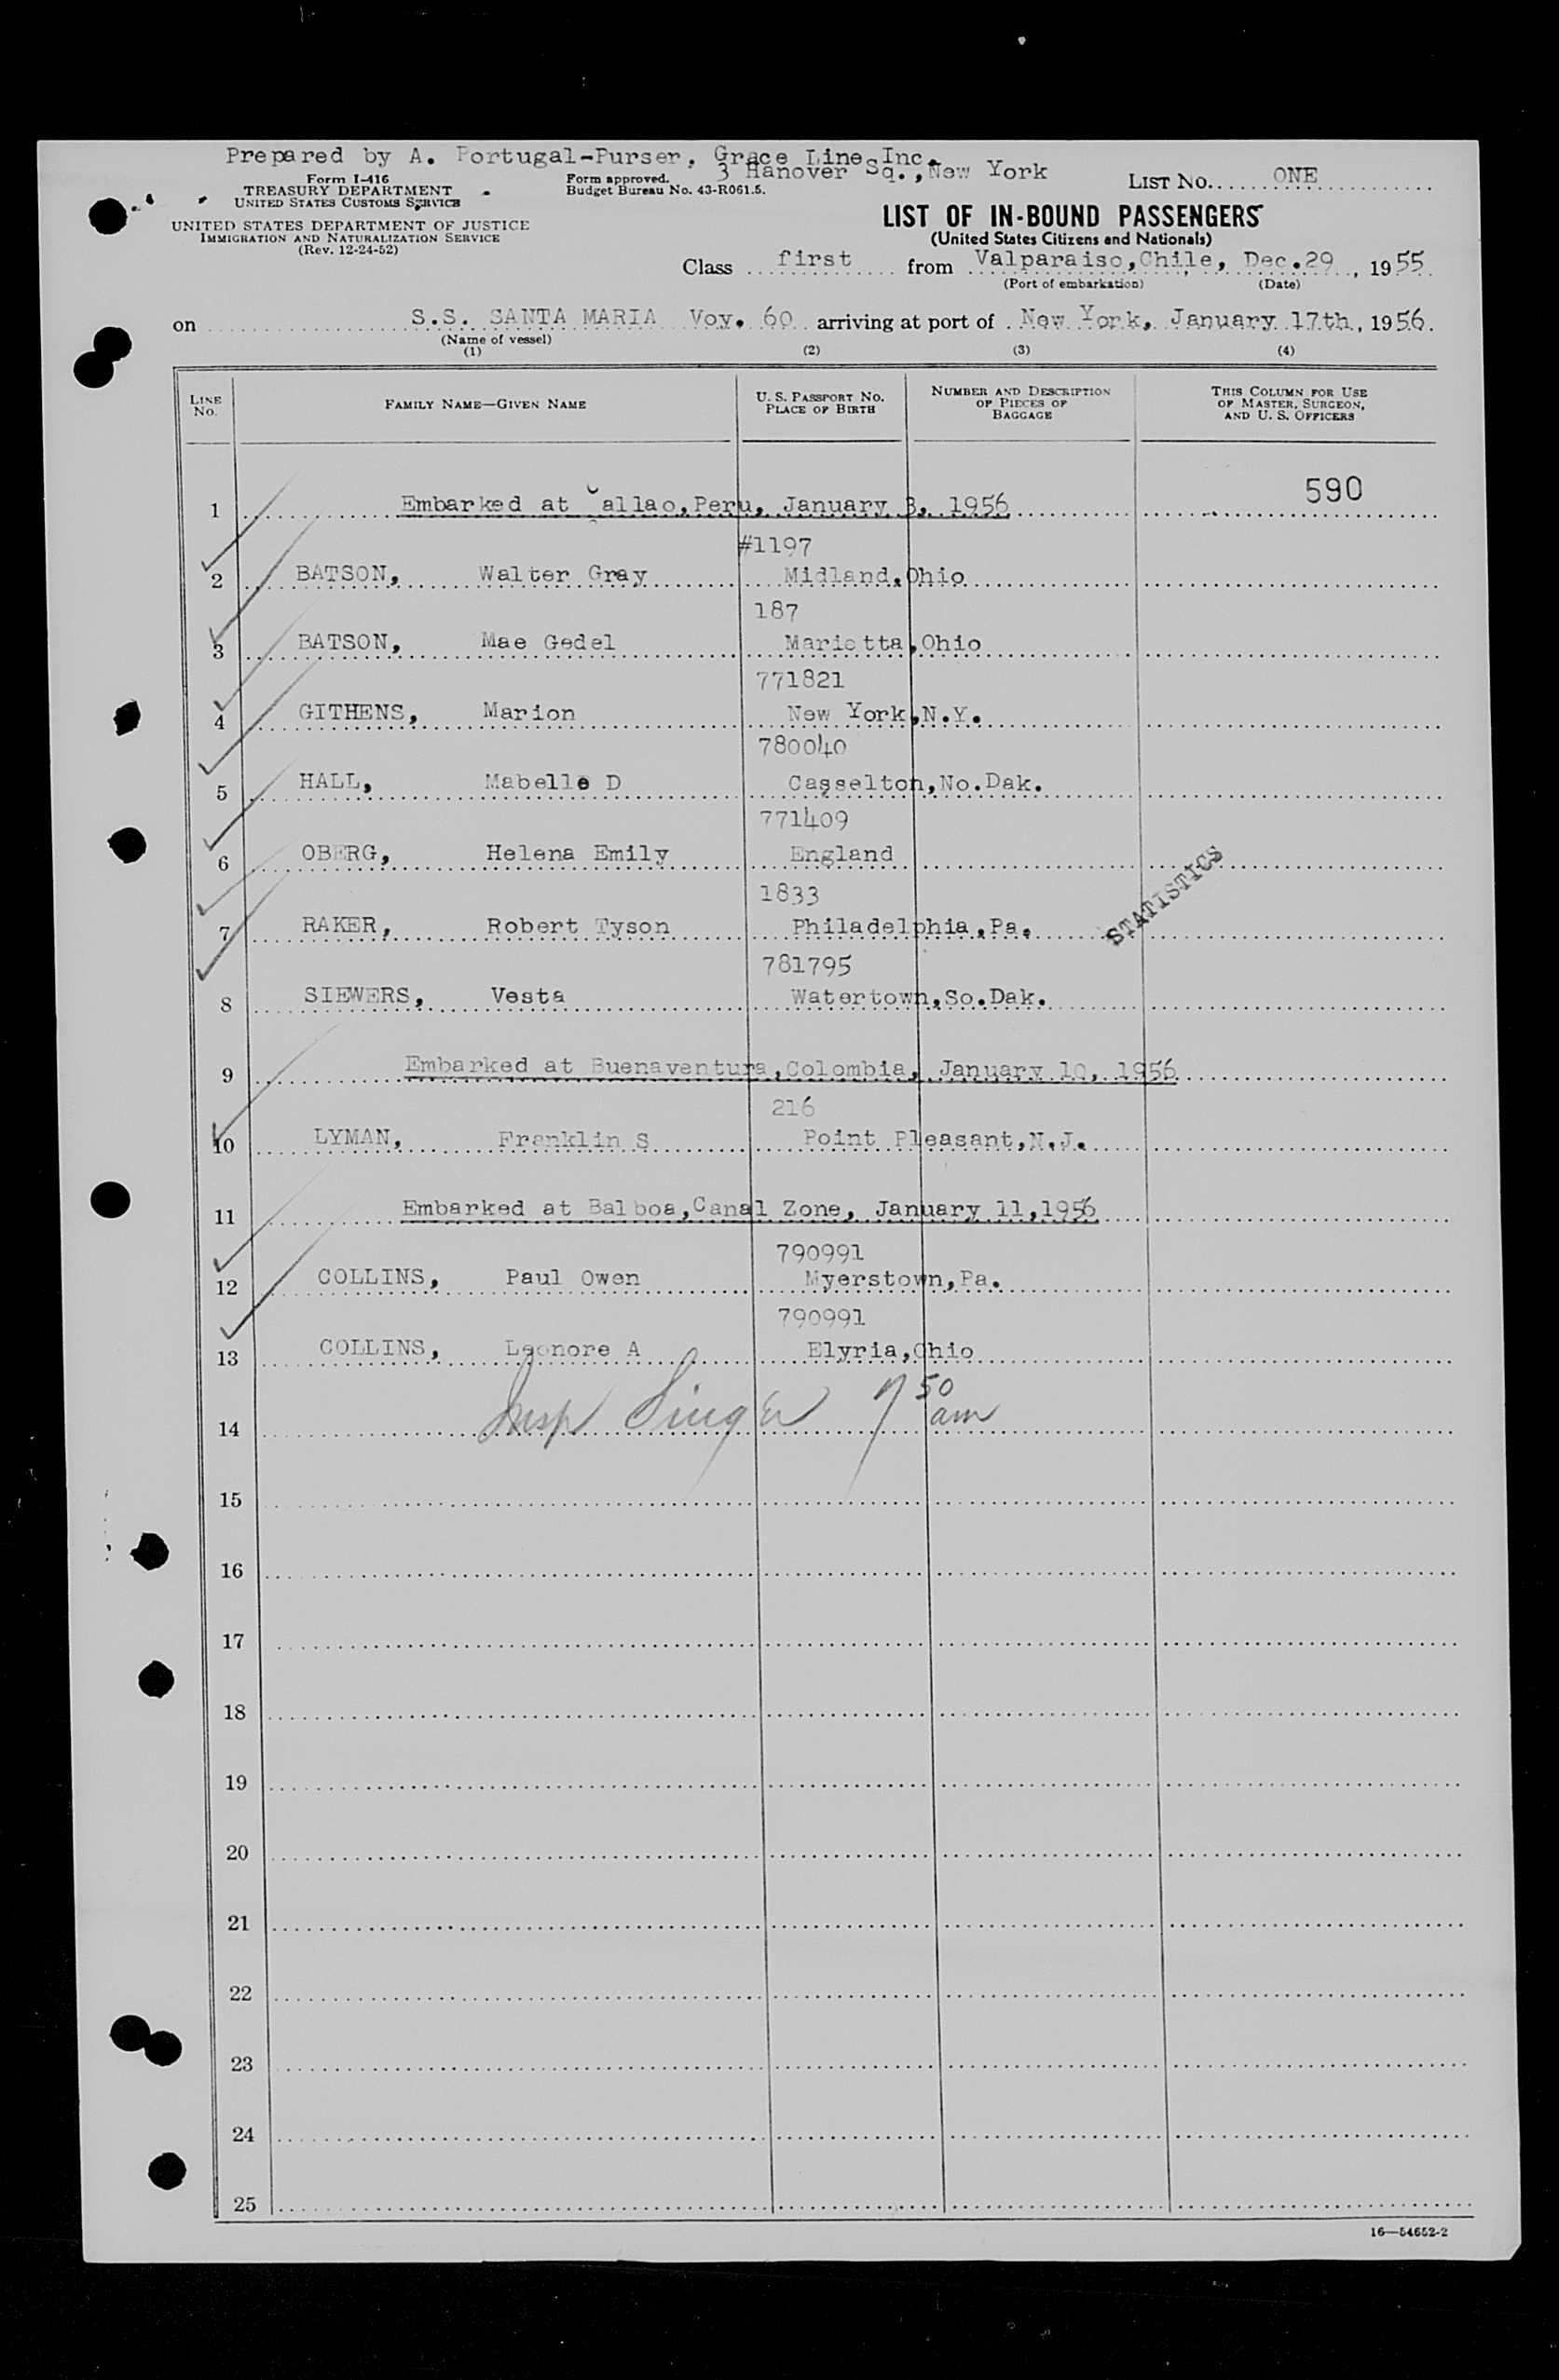 Prepared by A. Portugal-Purser, Grace Line Inc.
3 Hanover Sq., New York
Form I-416
TREASURY DEPARTMENT
UNITED STATES CUSTOMS SERVICE
Form approved.
Budget Bureau No. 43-R061.5.
LIST NO. ONE
UNITED STATES DEPARTMENT OF JUSTICE
IMMIGRATION AND NATURALIZATION SERVICE
(Rev. 12-24-52)
LIST OF IN-BOUND PASSENGERS
(United States Citizens and Nationals)
Class first from Valparaiso,Chile, Dec.29, 1955.
(Port of embarkation) (Date)
on S.S. SANTA MARIA Voy. 60 arriving at port of New York, January 17th, 1956.
(Name of vessel)
(1) (2) (3) (4)
LINE NO.
FAMILY NAME—GIVEN NAME
U. S. PASSPORT NO.
PLACE OF BIRTH
NUMBER AND DESCRIPTION
OF PIECES OF
BAGGAGE
THIS COLUMN FOR USE
OF MASTER, SURGEON,
AND U. S. OFFICERS
590
1 Embarked at Callao,Peru, January 3, 1956
#1197
2 BATSON, Walter Gray Midland,Ohio
187
3 BATSON, Mae Gedel Marietta,Ohio
771821
4 GITHENS, Marion New York,N.Y.
780040
5 HALL, Mabelle D Casselton,No.Dak.
771409
6 OBERG, Helena Emily England
1833
7 RAKER, Robert Tyson Philadelphia,Pa.
STATISTICS
781795
8 SIEWERS, Vesta Watertown,So.Dak.
9 Embarked at Buenaventura,Colombia, January 10, 1956
216
10 LYMAN, Franklin S Point Pleasant,N.J.
11 Embarked at Balboa,Canal Zone, January 11,1956
790991
12 COLLINS, Paul Owen Myerstown,Pa.
790991
13 COLLINS, Leonore A Elyria,Ohio
14 Insp Singer 7 50 am
15
16
17
18
19
20
21
22
23
24
25
16—54652-2